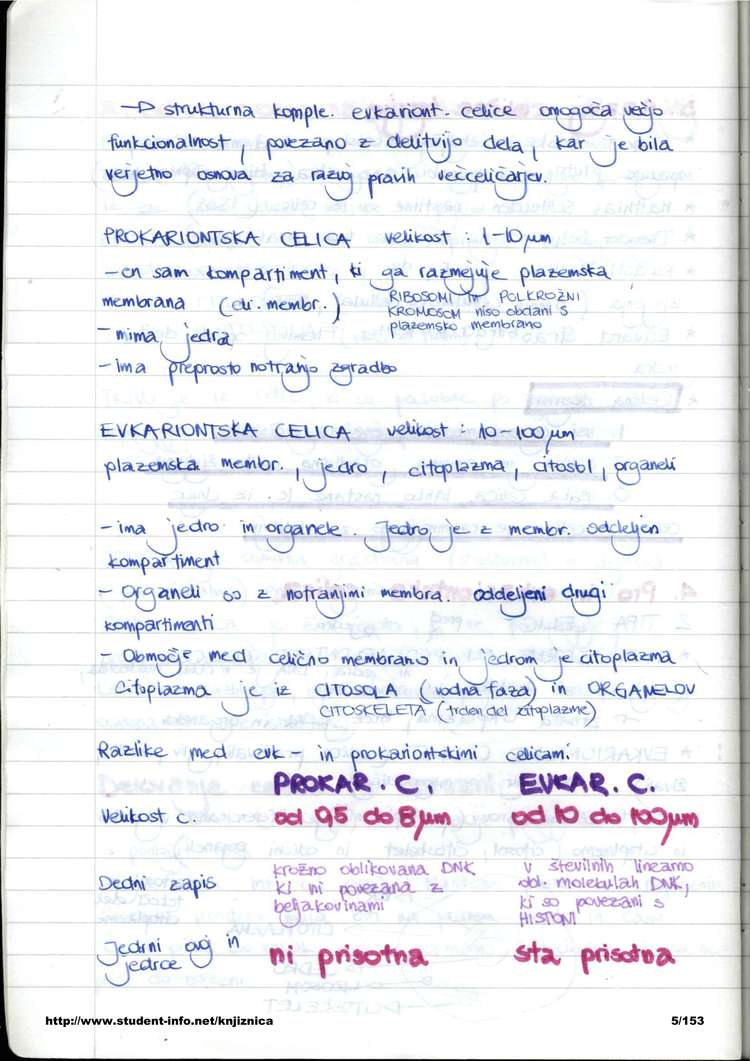 → strukturna komple. evkariont. celice omogoča večjo
funkcionalnost, povezano z delitvijo dela, kar je bila
verjetno osnova za razvoj pravih večceličarjev.
PROKARIONTSKA CELICA velikost : 1-10 µm
- en sam kompartiment, ki ga razmejuje plazemska
membrana (cit. membr.) RIBOSOMI in POLKROŽNI
KROMOSOM niso obdani s
plazemsko membrano
- nima jedra
- ima preprosto notranjo zgradbo
EVKARIONTSKA CELICA velikost : 10-100 µm
plazemska membr., jedro, citoplazma, citosol, organeli
- ima jedro in organele. Jedro je z membr. oddeljen
kompartiment
- Organeli so z notranjimi membra. oddeljeni drugi
kompartimenti
- Območje med celično membrano in jedrom je citoplazma
Citoplazma je iz CITOSOLA (vodna faza) in ORGANELOV
CITOSKELETA (trden del citoplazme)
Razlike med evk- in prokariontskimi celicami
PROKAR. C. EVKAR. C.
Velikost c. od 0,5 do 8 µm od 10 do 100 µm
Dedni zapis krožno oblikovana DNK v številnih linearno
ki ni povezana z obl. molekulah DNK,
beljakovinami ki so povezani s
HISTONI
Jedrni ovoj in ni prisotna sta prisotna
jedrce
http://www.student-info.net/knjiznica 5/153